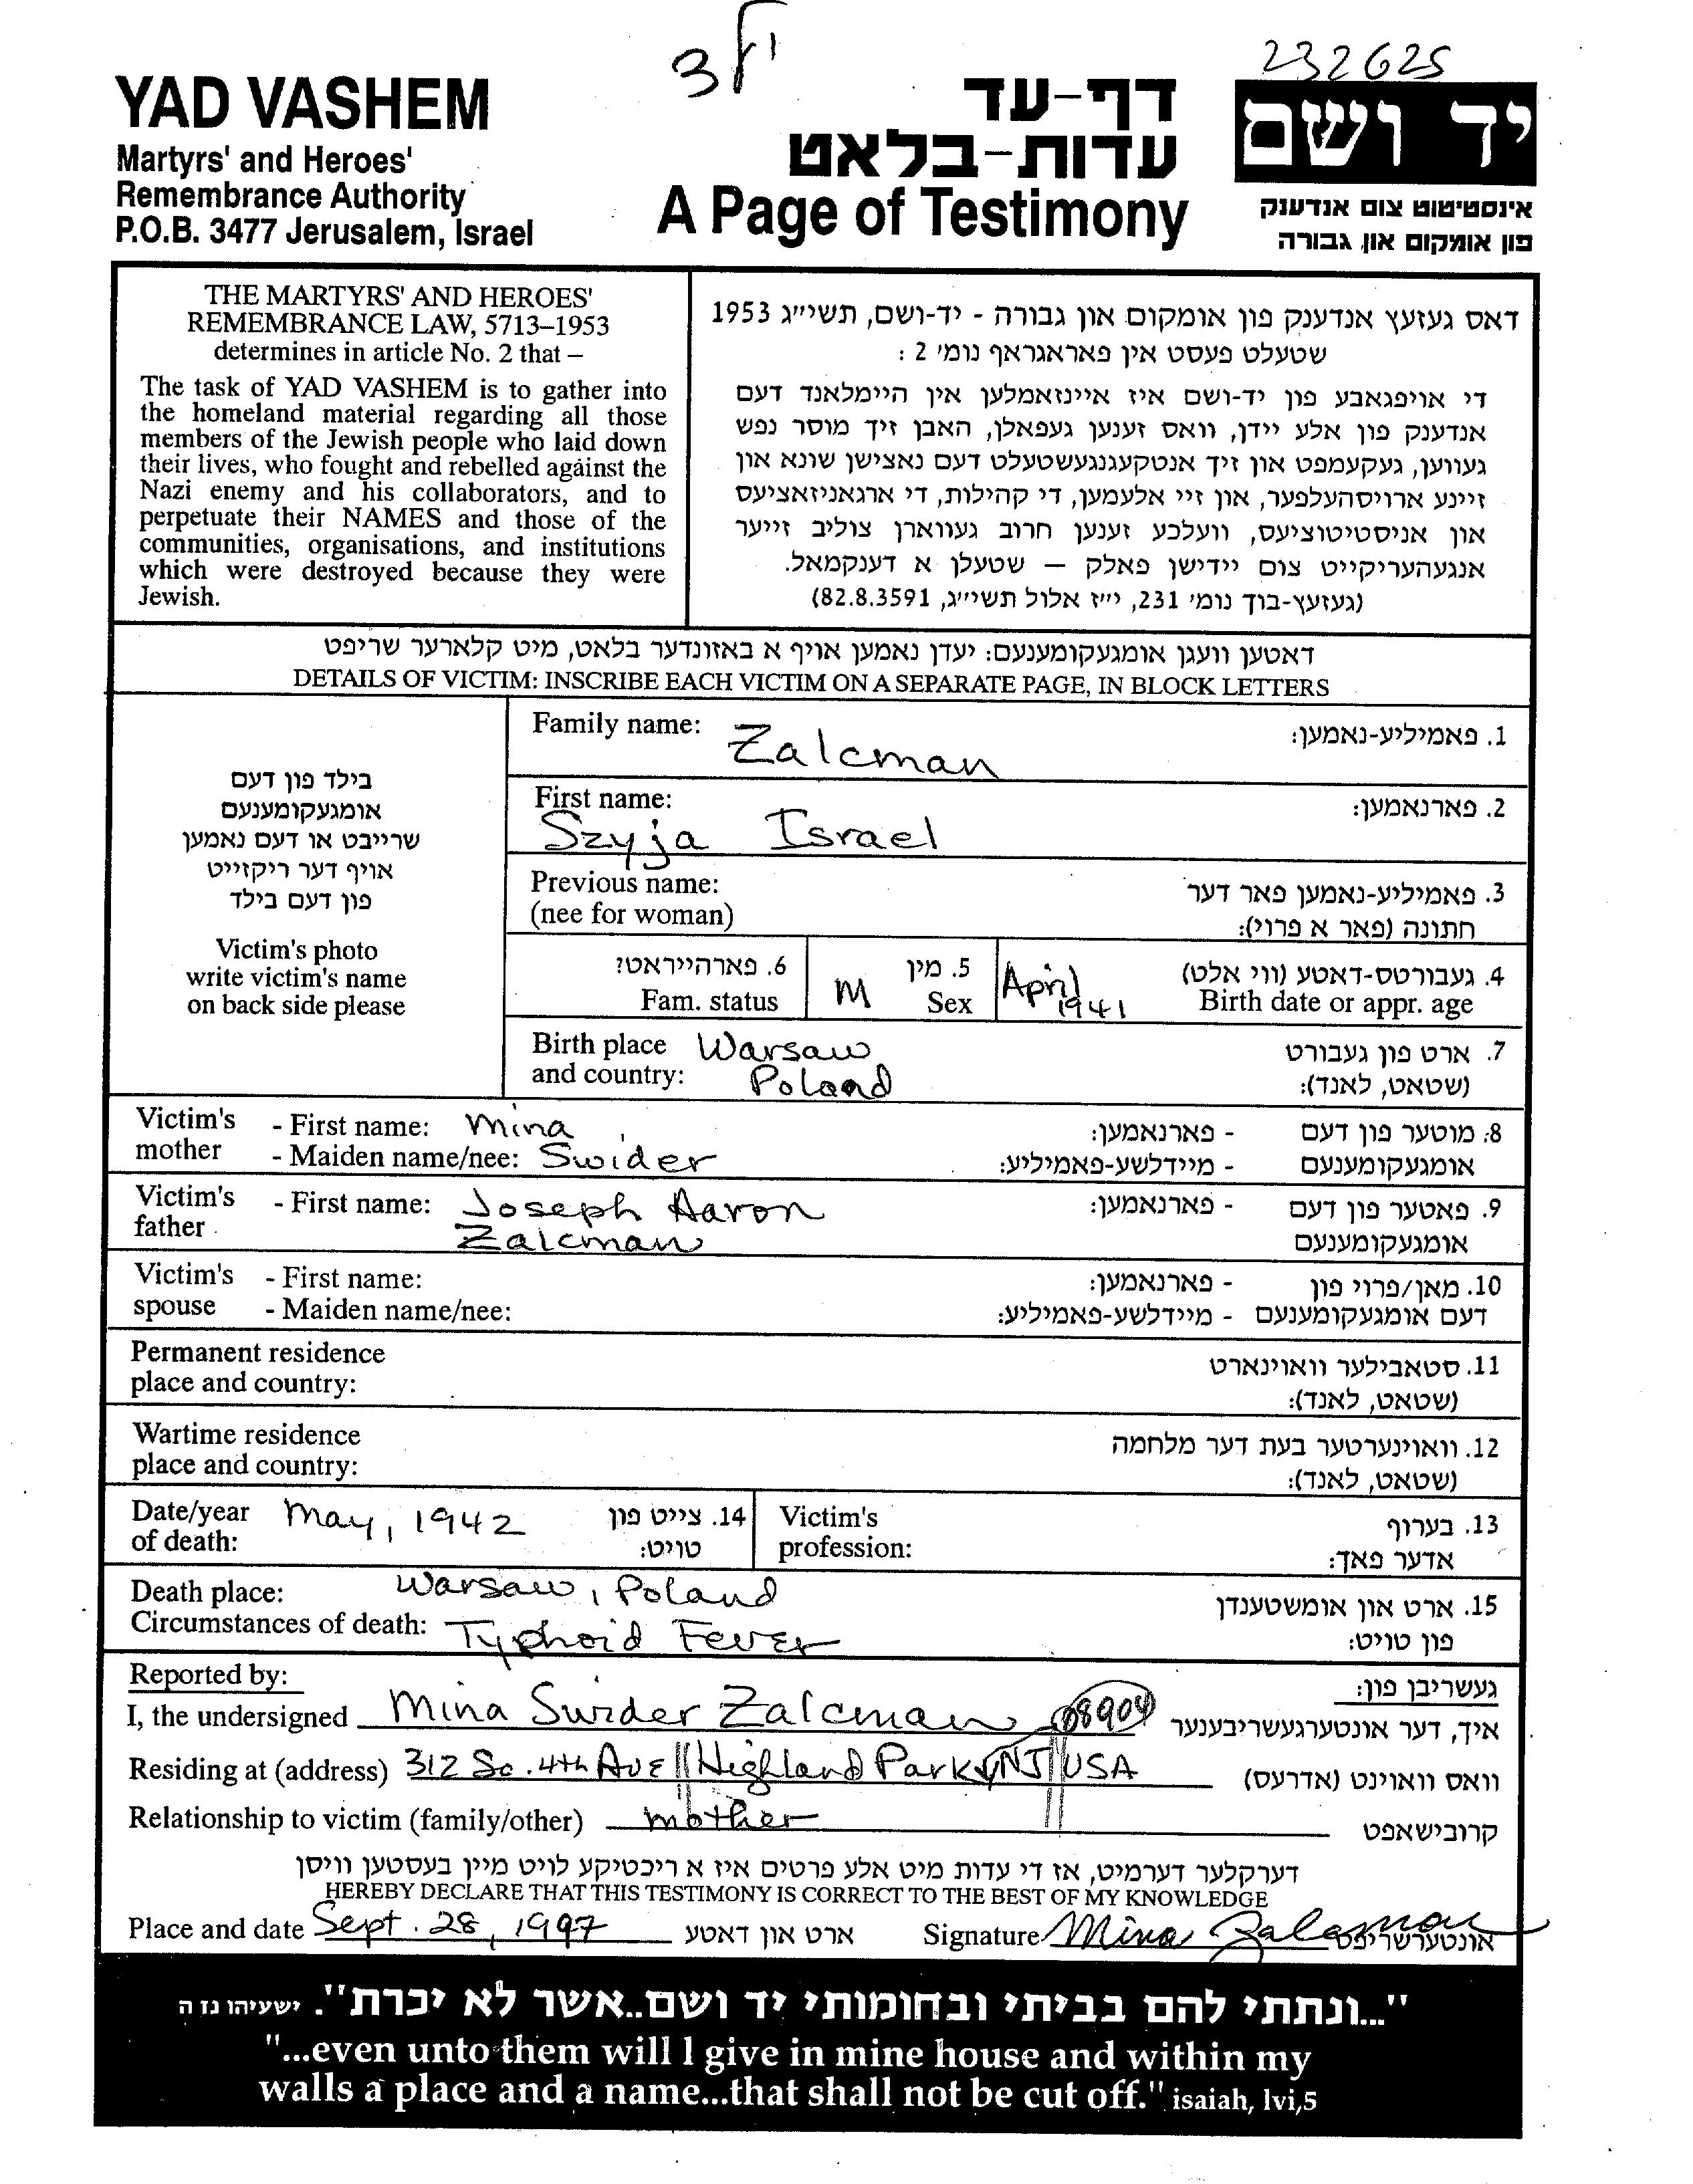 232625
YAD VASHEM
Martyrs' and Heroes'
Remembrance Authority
P.O.B. 3477 Jerusalem, Israel
דף-עד
עדות-בלאט
A Page of Testimony
יד ושם
אינסטיטוט צום אנדענק
פון אומקום און גבורה
THE MARTYRS' AND HEROES'
REMEMBRANCE LAW, 5713–1953
determines in article No. 2 that –
The task of YAD VASHEM is to gather into
the homeland material regarding all those
members of the Jewish people who laid down
their lives, who fought and rebelled against the
Nazi enemy and his collaborators, and to
perpetuate their NAMES and those of the
communities, organisations, and institutions
which were destroyed because they were
Jewish.
דאס געזעץ אנדענק פון אומקום און גבורה - יד-ושם, תשי״ג 1953
שטעלט פעסט אין פאראגראף נומ׳ 2 :
די אויפגאבע פון יד-ושם איז איינזאמלען אין היימלאנד דעם
אנדענק פון אלע יידן, וואס זענען געפאלן, האבן זיך מוסר נפש
געווען, געקעמפט און זיך אנטקעגנגעשטעלט דעם נאצישן שונא און
זיינע ארויסהעלפער, און זיי אלעמען, די קהילות, די ארגאניזאציעס
און אניסטיטוציעס, וועלכע זענען חרוב געווארן צוליב זייער
אנגעהעריקייט צום יידישן פאלק – שטעלן א דענקמאל.
(געזעץ-בוך נומ׳ 231, י״ז אלול תשי״ג, 82.8.3591)
דאטען וועגן אומגעקומענעם: יעדן נאמען אויף א באזונדער בלאט, מיט קלארער שריפט
DETAILS OF VICTIM: INSCRIBE EACH VICTIM ON A SEPARATE PAGE, IN BLOCK LETTERS
בילד פון דעם
אומגעקומענעם
שרייבט או דעם נאמען
אויף דער ריקזייט
פון דעם בילד
Victim's photo
write victim's name
on back side please
Family name: Zalcman 1. פאמיליע-נאמען:
First name: Szyja Israel 2. פארנאמען:
Previous name: 3. פאמיליע-נאמען פאר דער
(nee for woman) חתונה (פאר א פרוי):
6. פארהייראט? 5. מין 4. געבורטס-דאטע (ווי אלט)
Fam. status M Sex April 1941 Birth date or appr. age
Birth place Warsaw 7. ארט פון געבורט
and country: Poland (שטאט, לאנד):
Victim's - First name: Mina - פארנאמען: 8. מוטער פון דעם
mother - Maiden name/nee: Swider - מיידלשע-פאמיליע: אומגעקומענעם
Victim's - First name: Joseph Aaron - פארנאמען: 9. פאטער פון דעם
father Zalcman אומגעקומענעם
Victim's - First name: - פארנאמען: 10. מאן/פרוי פון
spouse - Maiden name/nee: - מיידלשע-פאמיליע: דעם אומגעקומענעם
Permanent residence 11. סטאבילער וואוינארט
place and country: (שטאט, לאנד):
Wartime residence 12. וואוינערטער בעת דער מלחמה
place and country: (שטאט, לאנד):
Date/year May, 1942 14. צייט פון Victim's 13. בערוף
of death: טויט: profession: אדער פאך:
Death place: Warsaw, Poland 15. ארט און אומשטענדן
Circumstances of death: Typhoid Fever פון טויט:
Reported by: געשריבן פון:
I, the undersigned Mina Swider Zalcman 08904 איך, דער אונטערגעשריבענער
Residing at (address) 312 So. 4th Ave Highland Park NJ USA וואס וואוינט (אדרעס)
Relationship to victim (family/other) mother קרובישאפט
דערקלער דערמיט, אז די עדות מיט אלע פרטים איז א ריכטיקע לויט מיין בעסטען וויסן
HEREBY DECLARE THAT THIS TESTIMONY IS CORRECT TO THE BEST OF MY KNOWLEDGE
Place and date Sept. 28, 1997 ארט און דאטע Signature Mina Zalcman אונטערשריפט
"...ונתתי להם בביתי ובחומותי יד ושם..אשר לא יכרת". ישעיהו נז ה
"...even unto them will I give in mine house and within my
walls a place and a name...that shall not be cut off." isaiah, lvi,5